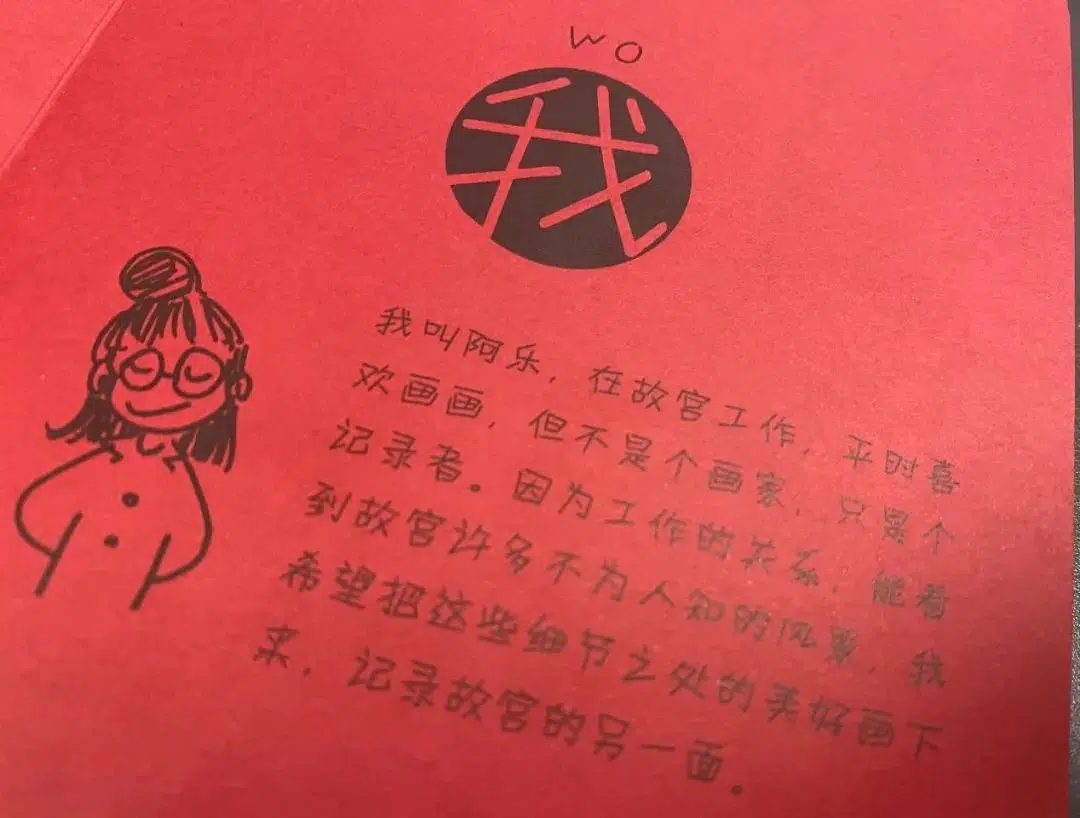 wo
我
我叫阿乐，在故宫工作，平时喜
欢画画，但不是个画家，只是个
记录者。因为工作的关系，能看
到故宫许多不为人知的风景，我
希望把这些细节之处的美好画下
来，记录故宫的另一面。